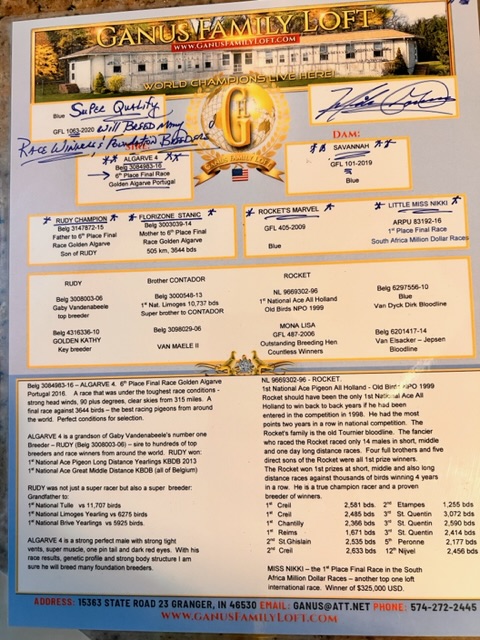 GANUS FAMILY LOFT
WWW.GANUSFAMILYLOFT.COM
WORLD CHAMPIONS LIVE HERE!
Blue Super Quality
GFL 1063-2020 will Breed Many
Race Winners & Foundation Breeders
GANUS FAMILY LOFT
DAM:
ALGARVE 4
Belg 3084983-16
6th Place Final Race
Golden Algarve Portugal
SAVANNAH
GFL 101-2019
Blue
RUDY CHAMPION
Belg 3147872-15
Father to 6th Place Final
Race Golden Algarve
Son of RUDY
FLORIZONE STANIC
Belg 3003039-14
Mother to 6th Place Final
Race Golden Algarve
505 km, 3644 bds
ROCKET'S MARVEL
GFL 405-2009
Blue
LITTLE MISS NIKKI
ARPU 83192-16
1st Place Final Race
South Africa Million Dollar Races
RUDY
Belg 3008003-06
Gaby Vandenabeele
top breeder
Brother CONTADOR
Belg 3000548-13
1st Nat. Limoges 10,737 bds
Super brother to CONTADOR
ROCKET
NL 9669302-96
1st National Ace All Holland
Old Birds NPO 1999
Belg 6297556-10
Blue
Van Dyck Dirk Bloodline
Belg 4316336-10
GOLDEN KATHY
Key breeder
Belg 3098029-06
VAN MAELE II
MONA LISA
GFL 487-2006
Outstanding Breeding Hen
Countless Winners
Belg 6201417-14
Van Elsacker – Jepsen
Bloodline
Belg 3084983-16 – ALGARVE 4. 6th Place Final Race Golden Algarve
Portugal 2016. A race that was under the toughest race conditions -
strong head winds, 90 plus degrees, clear skies from 315 miles. A
final race against 3644 birds – the best racing pigeons from around
the world. Perfect conditions for selection.
ALGARVE 4 is a grandson of Gaby Vandenabeele's number one
Breeder – RUDY (Belg 3008003-06) – sire to hundreds of top
breeders and race winners from around the world. RUDY won:
1st National Ace Pigeon Long Distance Yearlings KBDB 2013
1st National Ace Great Middle Distance KBDB (all of Belgium)
RUDY was not just a super racer but also a super breeder:
Grandfather to:
1st National Tulle vs 11,707 birds
1st National Limoges Yearling vs 6275 birds
1st National Brive Yearlings vs 5925 birds
ALGARVE 4 is a strong perfect male with strong tight
vents, super muscle, one pin tail and dark red eyes. With his
race results, genetic profile and strong body structure I am
sure he will breed many foundation breeders.
NL 9669302-96 - ROCKET.
1st National Ace Pigeon All Holland - Old Birds NPO 1999
Rocket should have been the only 1st National Ace All
Holland to win back to back years if he had been entered in
the competition in 1998. He had the most
points two years in a row in national competition. The
Rocket's family is the old Tournier bloodline. The fancier
who raced the Rocket raced only 14 males in short, middle
and one day long distance races. Four full brothers and five
direct sons of the Rocket were all 1st prize winners.
The Rocket won 1st prizes at short, middle and also long
distance races against thousands of birds winning 4 years
in a row. He is a true champion racer and a proven
breeder of winners.
1st Creil 2,581 bds. 2nd Etampes 1,255 bds
1st Creil 2,485 bds. 3rd St. Quentin 3,072 bds
1st Chantilly 2,366 bds 3rd St. Quentin 2,590 bds
1st Reims 1,671 bds 3rd St. Quentin 2,414 bds
2nd St.Ghislain 2,535 bds 5th Peronne 2,177 bds
2nd Creil 2,633 bds 12th Nijvel 2,456 bds
MISS NIKKI – the 1st Place Final Race in the South
Africa Million Dollar Races – another top one loft
international race. Winner of $325,000 USD.
ADDRESS: 15363 STATE ROAD 23 GRANGER, IN 46530 EMAIL: GANUS@ATT.NET PHONE: 574-272-2445
WWW.GANUSFAMILYLOFT.COM